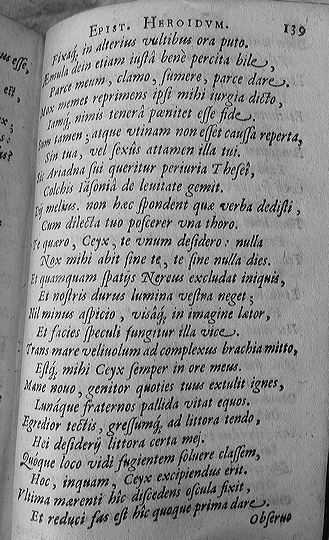 EPIST. HEROIDVM. 139
Fixaq́, in alterius vultibus ora puto.
Emula dein etiam iustâ benè percita bile,
Parce meum, clamo, sumere, parce dare.
Mox memet reprimens ipsi mihi iurgia dicto,
Iamq́, nimis tenerâ pœnitet esse fide.
Sum tamen; atque vtinam non esset caussa reperta,
Sin tua, vel sexûs attamen illa tui.
Sic Ariadna sui queritur periuria Theseî,
Colchis Iäsoniâ de leuitate gemit.
Dij melius. non hæc spondent que verba dedisti,
Cum dilecta tuo poscerer vna thoro.
Te quæro, Ceyx, te vnum desidero: nulla
Nox mihi abit sine te, te sine nulla dies.
Et quamquam spatijs Nereus excludat iniquis,
Et nostris durus lumina vestra neget;
Nil minus aspicio, visâq́, in imagine lætor,
Et facies speculi fungitur illa vice.
Trans mare veliuolum ad complexus brachia mitto,
Estq́, mihi Ceyx semper in ore meus.
Mane nouo, genitor quoties tuus extulit ignes,
Lunáque fraternos pallida vitat equos.
Egredior tectis, gressumq́, ad littora tendo,
Hei desiderij littora certa mej.
Quóque loco vidi fugientem soluere classem,
Hoc, inquam, Ceyx excipiendus erit.
Vltima mærenti hîc discedens oscula fixit,
Et reduci fas est hîc quoque prima dare.
Obseruo